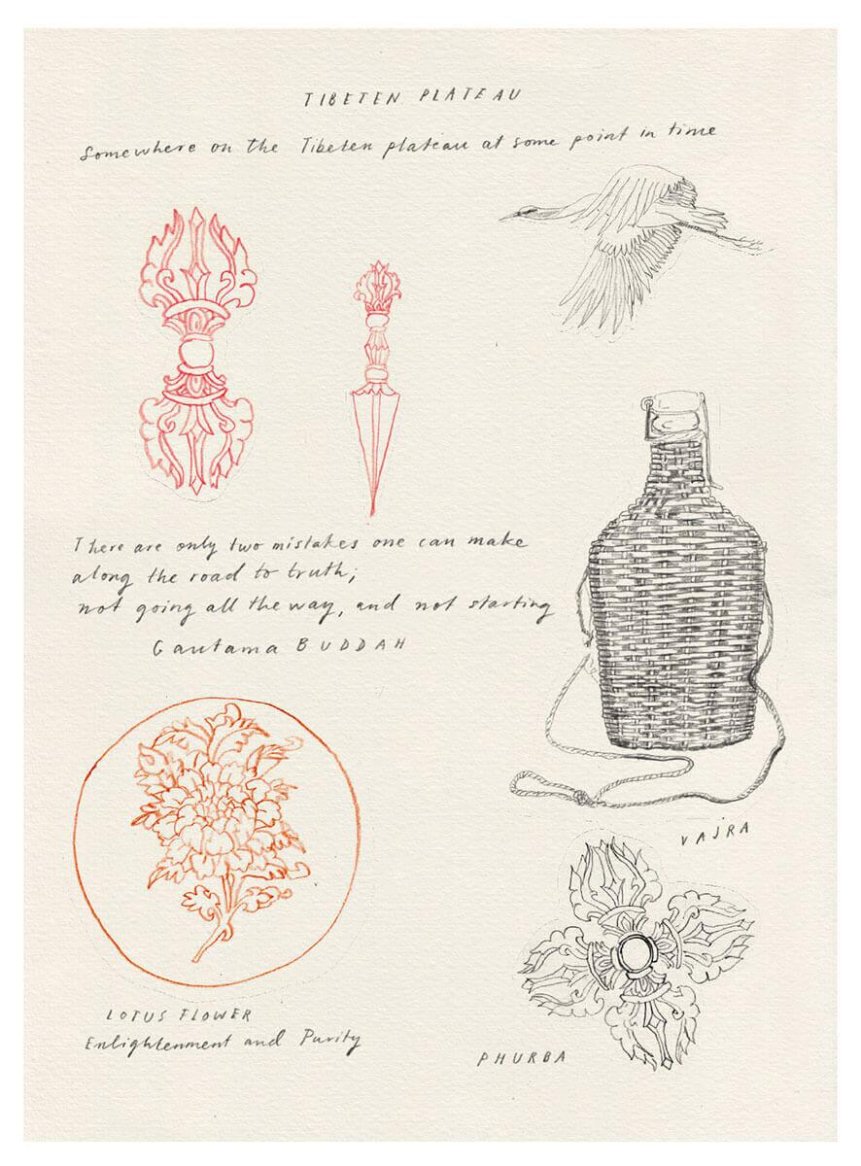 TIBETEN PLATEAU
Somewhere on the Tibeten plateau at some point in time
There are only two mistakes one can make
along the road to truth;
not going all the way, and not starting
Gautama BUDDAH
VAJRA
LOTUS FLOWER
Enlightenment and Purity
PHURBA